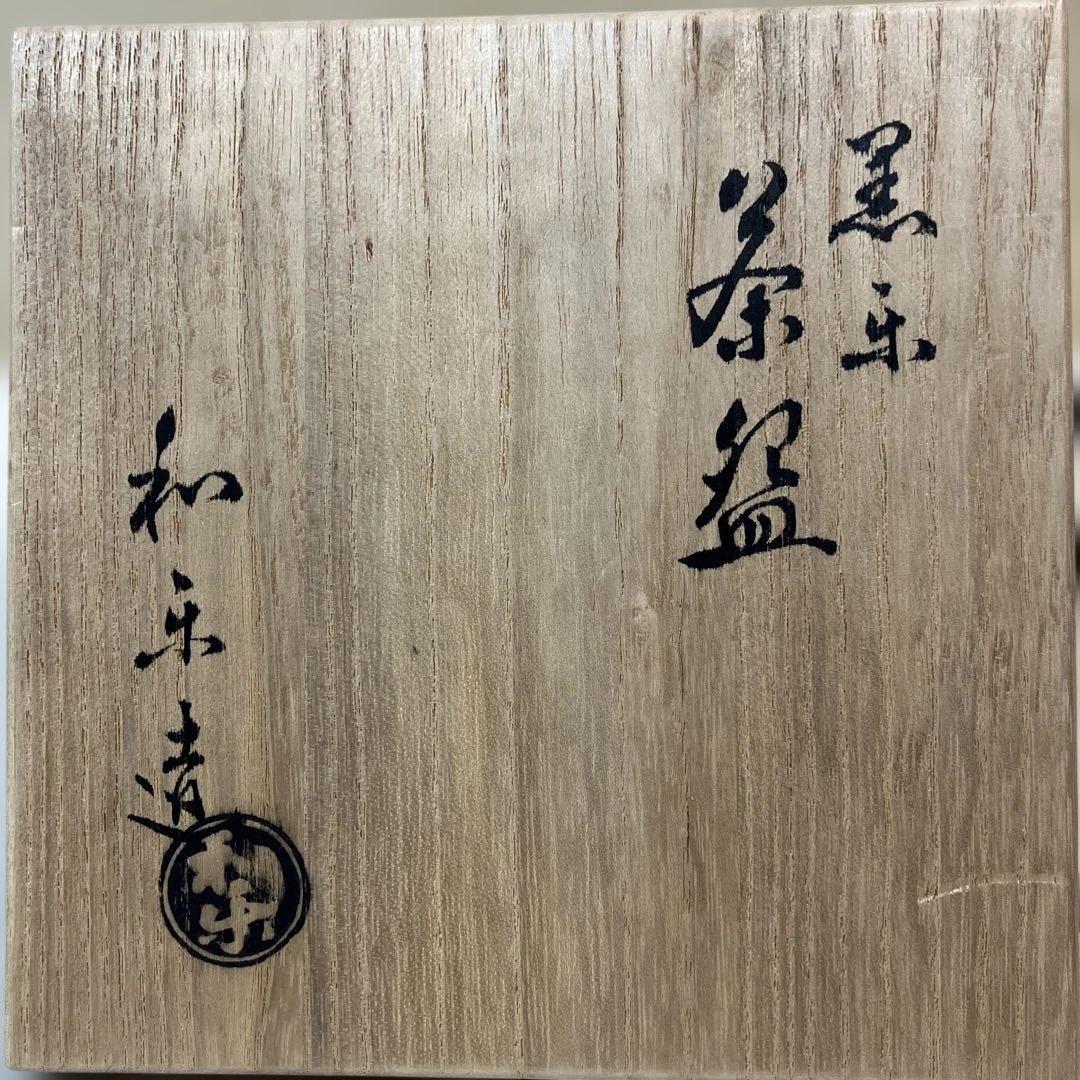 黒楽
茶盌
和楽造
和楽